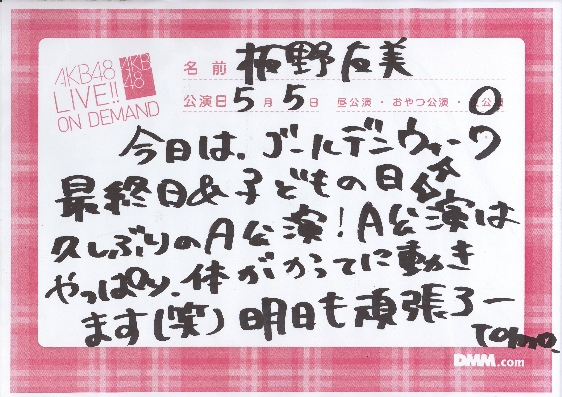 AKB48
LIVE!!
ON DEMAND
AKB
48
名前 板野友美
公演日 5月5日 昼公演・おやつ公演・夜公演
今日は、ゴールデンウィーク
最終日&子どもの日☆☆
久しぶりのA公演!A公演は
やっぱり、体がかってに動き
ます(笑)明日も頑張ろー
Tomo.
DMM.com